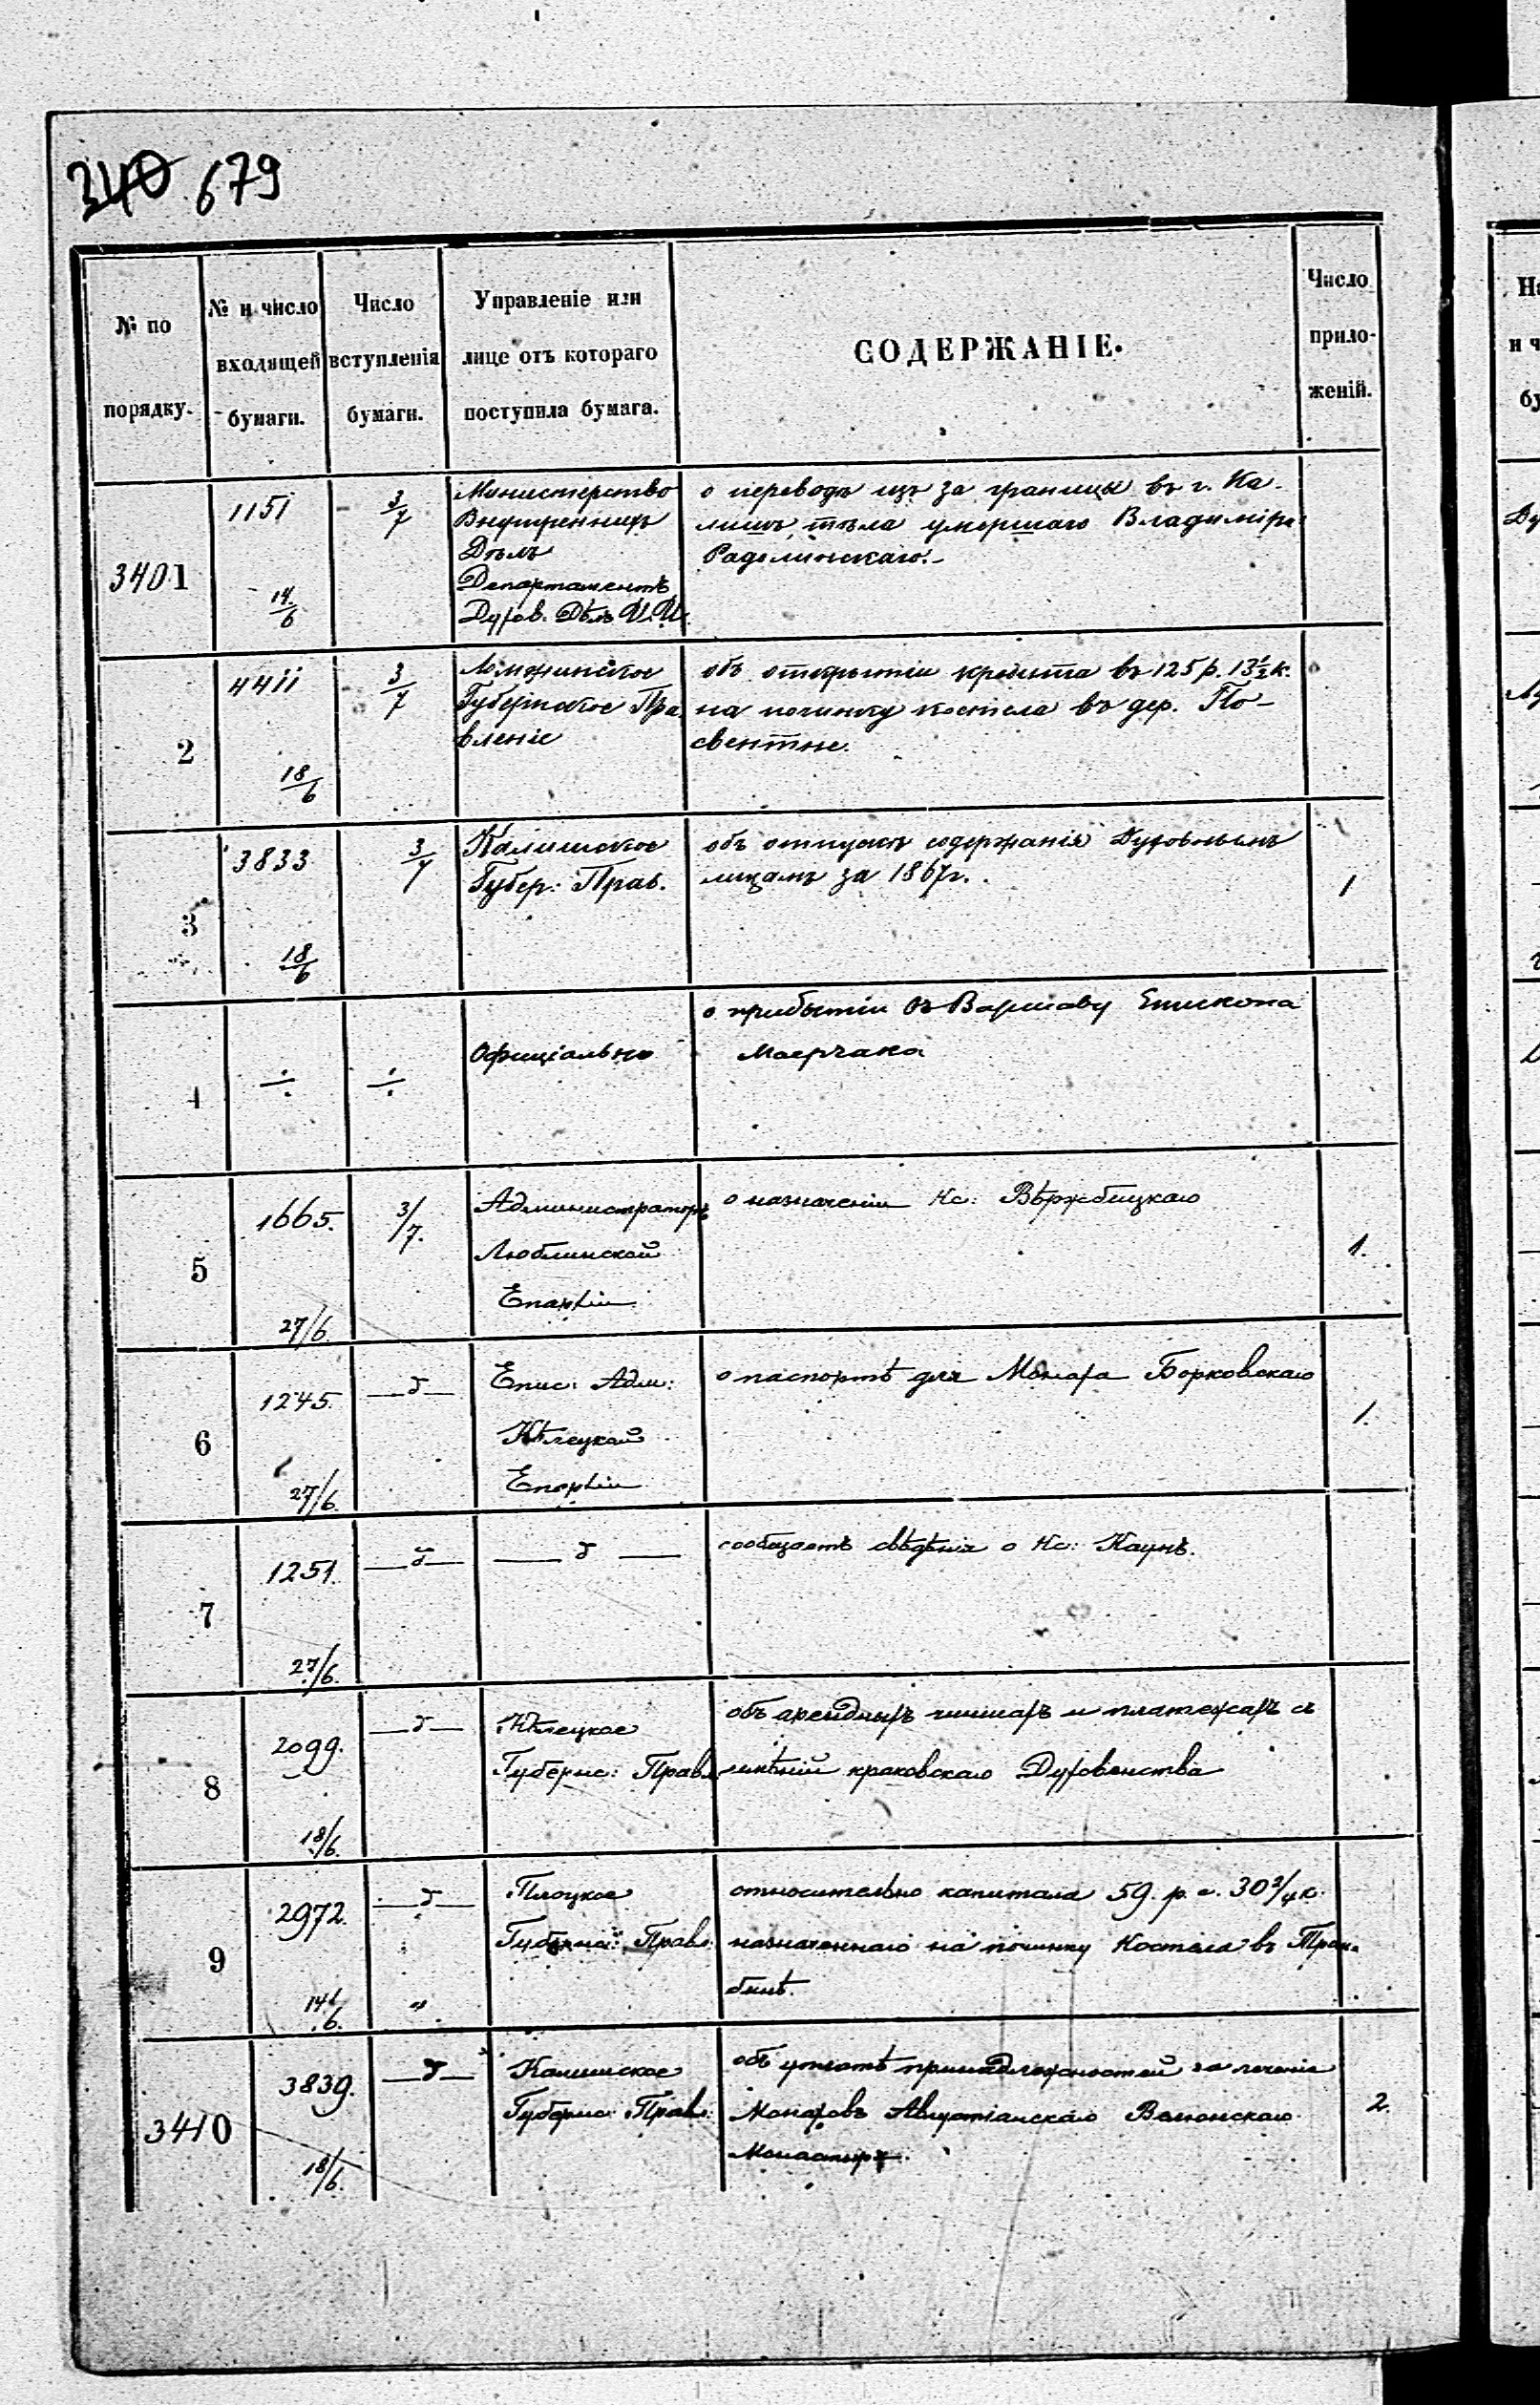 340 679
№ по
порядку.
№ и число
входящей
бумаги.
Число
вступленія
бумаги.
Управленіе или
лице отъ котораго
поступила бумага.
СОДЕРЖАНІЕ.
Число
прило-
женій.
3401
1151
14/6
3/7
Министерство
Внутреннихъ
Дѣлъ
Департаментъ
Духов. Дѣлъ И. И.
о переводѣ изъ за границы въ г. Ка-
лишъ, тѣла умершаго Владиміра
Радолинскаго.-
2
4411
18/6
3/7
Ломжинское
Губернское Пра
вленіе
объ открытіи кредита въ 125 р. 13 1/2 к.
на починку костела въ дер. По-
свентне.
3
3833
18/6
3/7
Калишское
Губер: Прав.
объ отпускѣ содержанія Духовнымъ
лицамъ за 1867 г.
1
4
÷
÷
Офиціально
о прибытіи въ Варшаву Епископа
Маерчака
5
1665.
27/6.
3/7.
Администраторъ
Люблинской
Епархіи
о назначеніи Кс: Вѣржбицкаго
1.
6
1245.
27/6.
—д—
Епис: Адм:
Кѣлецкой
Епархіи
о паспортѣ для Монаха Борковскаго
1.
7
1251.
27/6.
—д—
— д —
сообщаетъ свѣдѣнія о Кс: Каунѣ.
8
2099.
18/6.
—д—
Кѣлецкое
Губернс: Прав.
объ арендныхъ чиншахъ и платежахъ съ
имѣній краковскаго Духовенства
9
2972.
14/6.
—д—
"
Плоцкое
Губернс: Прав:
относительно капитала 59. р. с. 30 2/4 к.
назначеннаго на починку Костела въ
бинѣ.
3410
3839.
18/6.
—д—
Калишское
Губернс: Прав:
объ уплатѣ принадлежностей за леченіе
Монаховъ Августіанскаго Велюнскаго
Монастыря.
2.